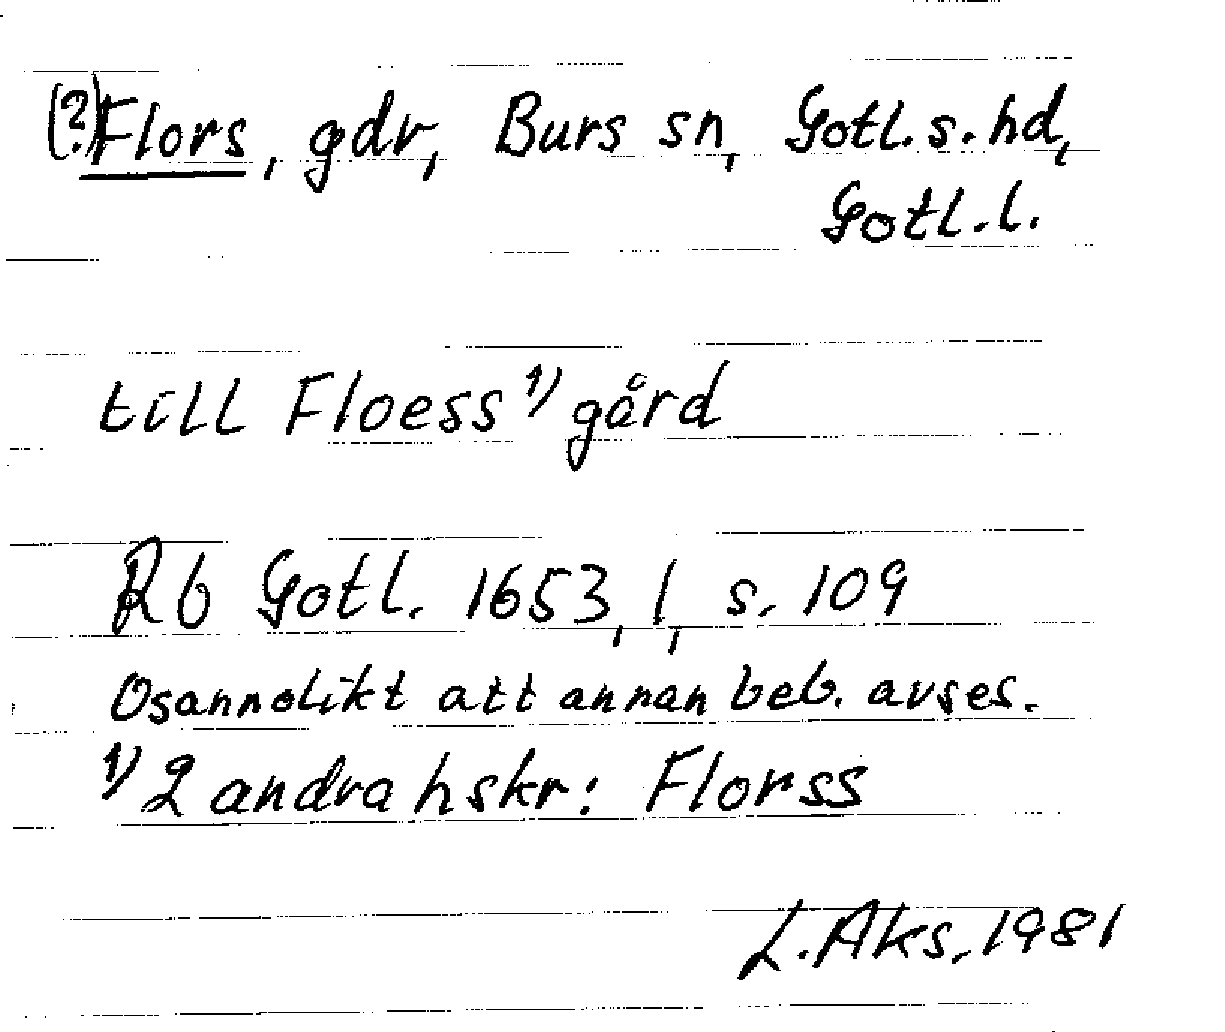 (?)Flors, gdr, Burs sn, Gotl. s. hd,
Gotl. l.
till Floess 1) gård
Rb Gotl. 1653, 1, s. 109
Osannolikt att annan beb. avses.
1) 2 andra hskr: Florss
L. Aks. 1981